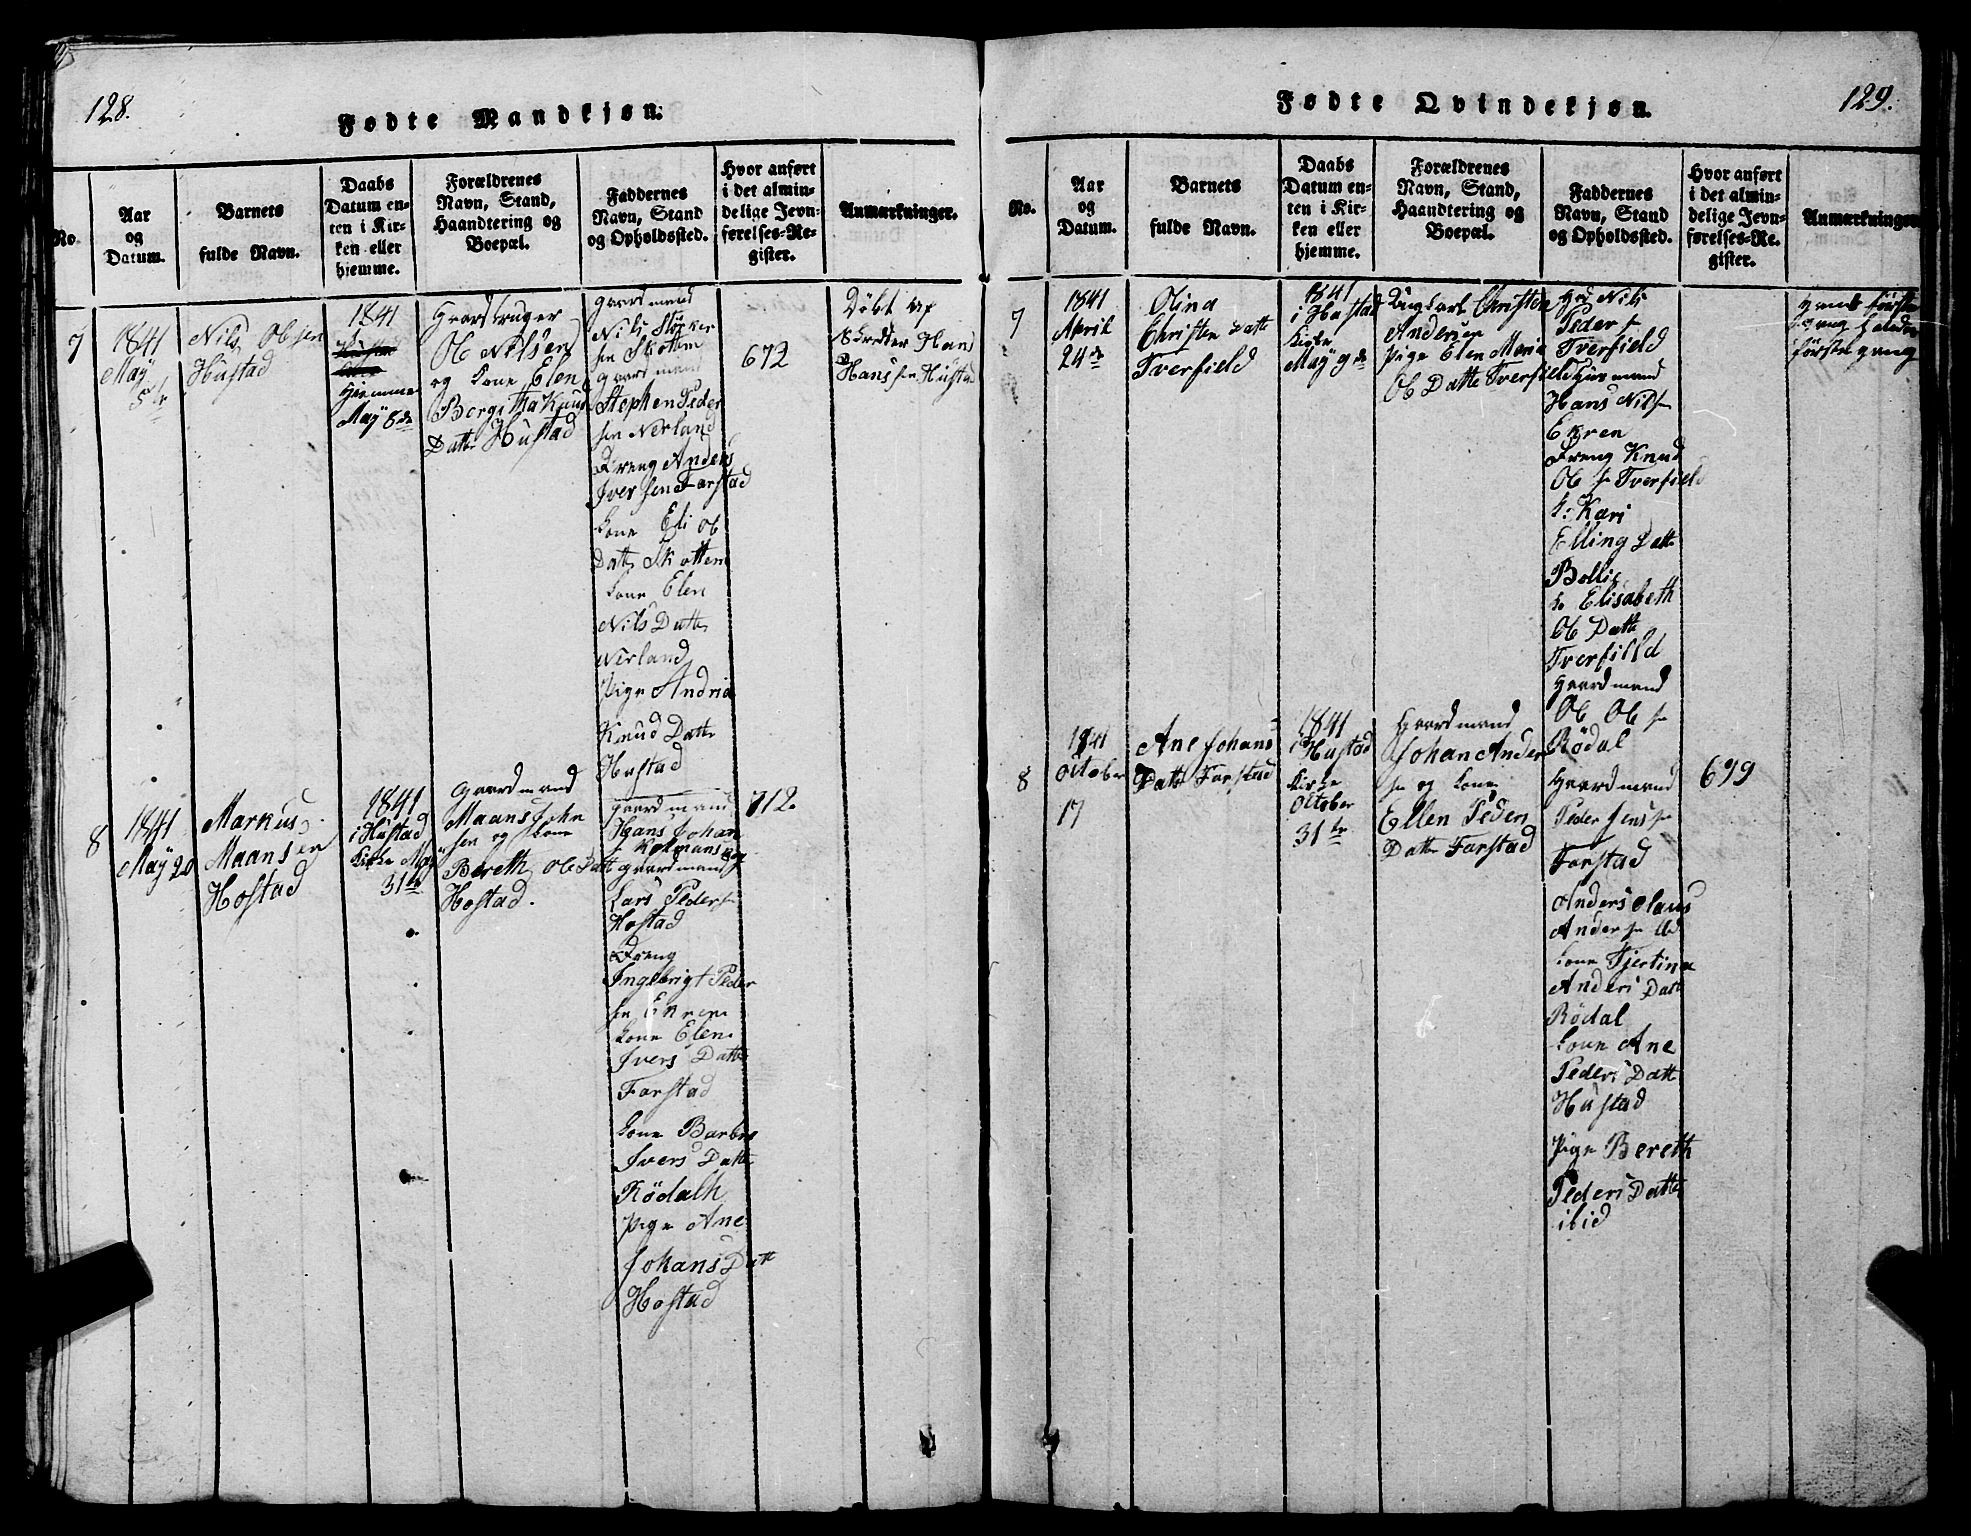 128.
Fødte Mandkjøn.
No.
Aar
og
Datum.
Barnets
fulde Navn.
Daabs
Datum en-
ten i Kir-
ken eller
hjemme.
Forældrenes
Navn, Stand,
Haandtering og
Boepæl.
Faddernes
Navn, Stand
og Opholdssted.
Hvor anført
i det almin-
delige Jevn-
førelses-Re-
gister.
Anmærkninger.
7
1841
May
Nils Ol sen
Hustad
1841
Hiemme
May 8de
Gaardbruger
Ol Nelsen
og Kone Elen
Bergitha Knud
Datte Hustad
gaardmand
Nils
sen Skottem
gaardmand
Stephen Peder
sen Nerland
Dreng Anders
Iversen Farstad
Kone Eli Ol
Datte Skottem
Kone Elen
Nils Datte
Nerland
Pige Andria
Knud Datte
Hustad
672
Döbt af
Hans
Hans sen Hustad
8
1841
May 20
Markus
Maansen
Hostad
1841
i Hustad
Kirke May
31te
Gaardmand
Maans John
sen og Kone
Bereth Ol Datt
Hostad.
gaardmand
Hans Johan
gaardmand
Lars Peders
Hostad
Dreng
Ingebrigt Peder
sen Ekren
Kone Elen
Ivers Datte
Farstad
Kone Barbro
Ivers Datte
Rödalh
Pige Ane
Johans Datt
Hostad
712.
129.
Fødte Qvindekjøn.
No.
Aar
og
Datum.
Barnets
fulde Navn.
Daabs
Datum en-
ten i Kir-
ken eller
hjemme.
Forældrenes
Navn, Stand,
Haandtering og
Boepæl.
Faddernes
Navn, Stand
og Opholdssted.
Hvor anført
i det almin-
delige Jevn-
førelses-Re-
gister.
Anmærkninger
7
1841
April
24de
Olina
Christen Datte
Tverfield
1841
i Hustad
Kirke
May 9de
Ungkarl Christen
Andersen
Pige Elen Maria
Ol Datte Tverfield
Nils
Peder s
Tverfield
Husmand
Hans Nils
Ekren
Dreng Knud
Ol s Tverfield
K: Kari
Elling Datte
Bollie
K Elisabeth
Ol Datte
Tverfilld
første gang
8
1841
October
17
Ane Johans
Datte Farstad
1841
i Hustad
Kirke
October
31te
Gaardmand
Johan Ander
s og Kone
Ellen Peders
Datte Farstad
Gaardmand
Ol Ol s
Rödal
Gaardmand
Peder Jens s
Farstad
Anders Olaus
Ander s
Kone Tjertina
Anders Datt
Rödal
Kone Ane
Peders Datte
Hustad
Pige Bereth
Peders Datte
ibid
699